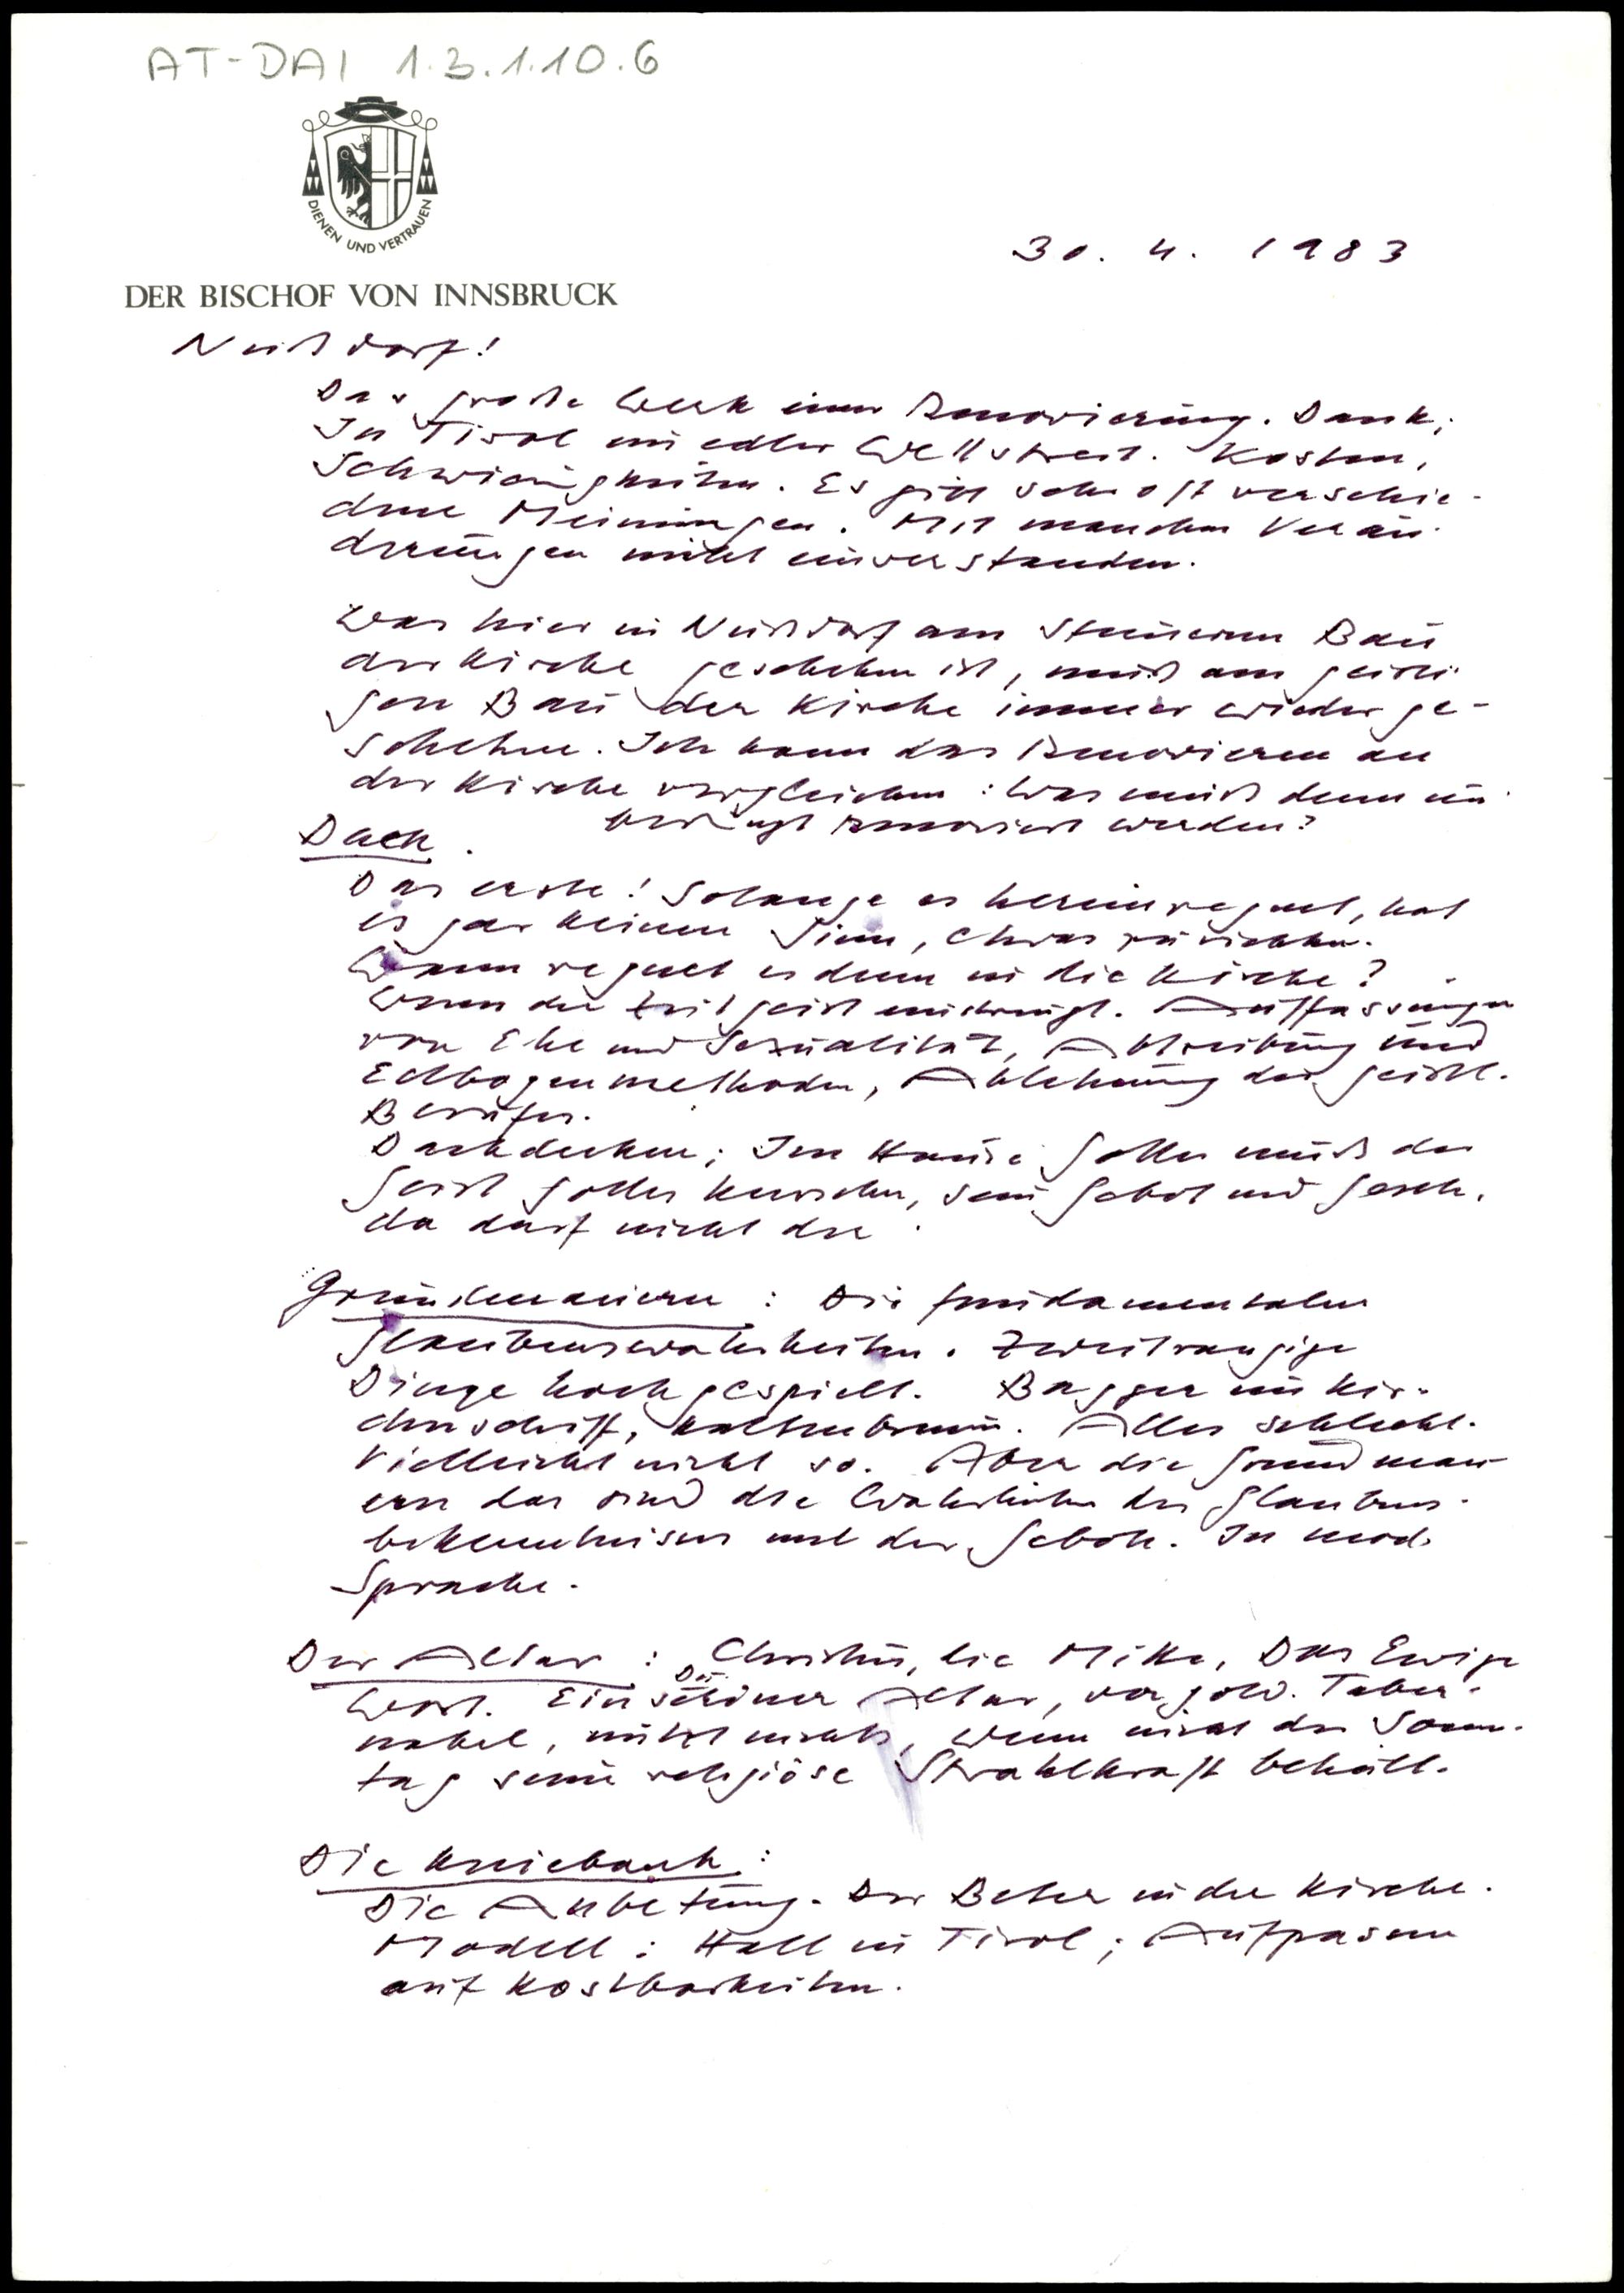 AT-DAI 1.3.1.10.6
DIENEN UND VERTRAUEN
30. 4. 1983
DER BISCHOF VON INNSBRUCK
Nußdorf!
Das große Werk einer Renovierung. Dank,
In Tirol ein edler Wettstreit. Kosten,
Schwierigkeiten. Es gibt sehr oft verschie-
dene Meinungen. Mit manchen Verän-
derungen nicht einverstanden.
Was hier in Nußdorf am steinernen Bau
der Kirche geschehen ist, muß am geisti-
gen Bau der Kirche immer wieder ge-
schehen. Ich kann das Renovieren an
der Kirche vergleichen: Was muß denn un-
bedingt renoviert werden?
Dach.
Das erste! Solange es hereinregnet, hat
es gar keinen Sinn, etwas zu richten.
Wann regnet es denn in die Kirche?
Wenn der Zeitgeist eindringt. Auffassungen
von Ehe und Sexualität, Abtreibung und
Ellbogenmethoden, Ablehnung der geistl.
Berufes.
Dachdecken; Im Hause Gottes muß der
Geist Gottes herrschen, sein Gebot und Gesetz,
da darf nicht der
Grundmauern: Die fundamentalen
Glaubenswahrheiten. Zweitrangige
Dinge hochgespielt. Bagger im Kir-
chenschiff, Kaltenbrunn. Alles schlecht.
Vielleicht nicht so. Aber die Grundmau-
ern das sind die Wahrheiten des Glaubens-
bekenntnisses und der Gebote. In mod.
Sprache.
Der Altar: Christus, die Mitte, Das Ewige
Wort. Ein schöner Altar, vergold. Taber-
nakel, nützt nichts, wenn nicht der Sonn-
tag seine religiöse Strahlkraft behält.
Die Kniebank:
Die Anbetung. Der Beter in der Kirche.
Modell: Hall in Tirol; Aufpassen
auf Kostbarkeiten.